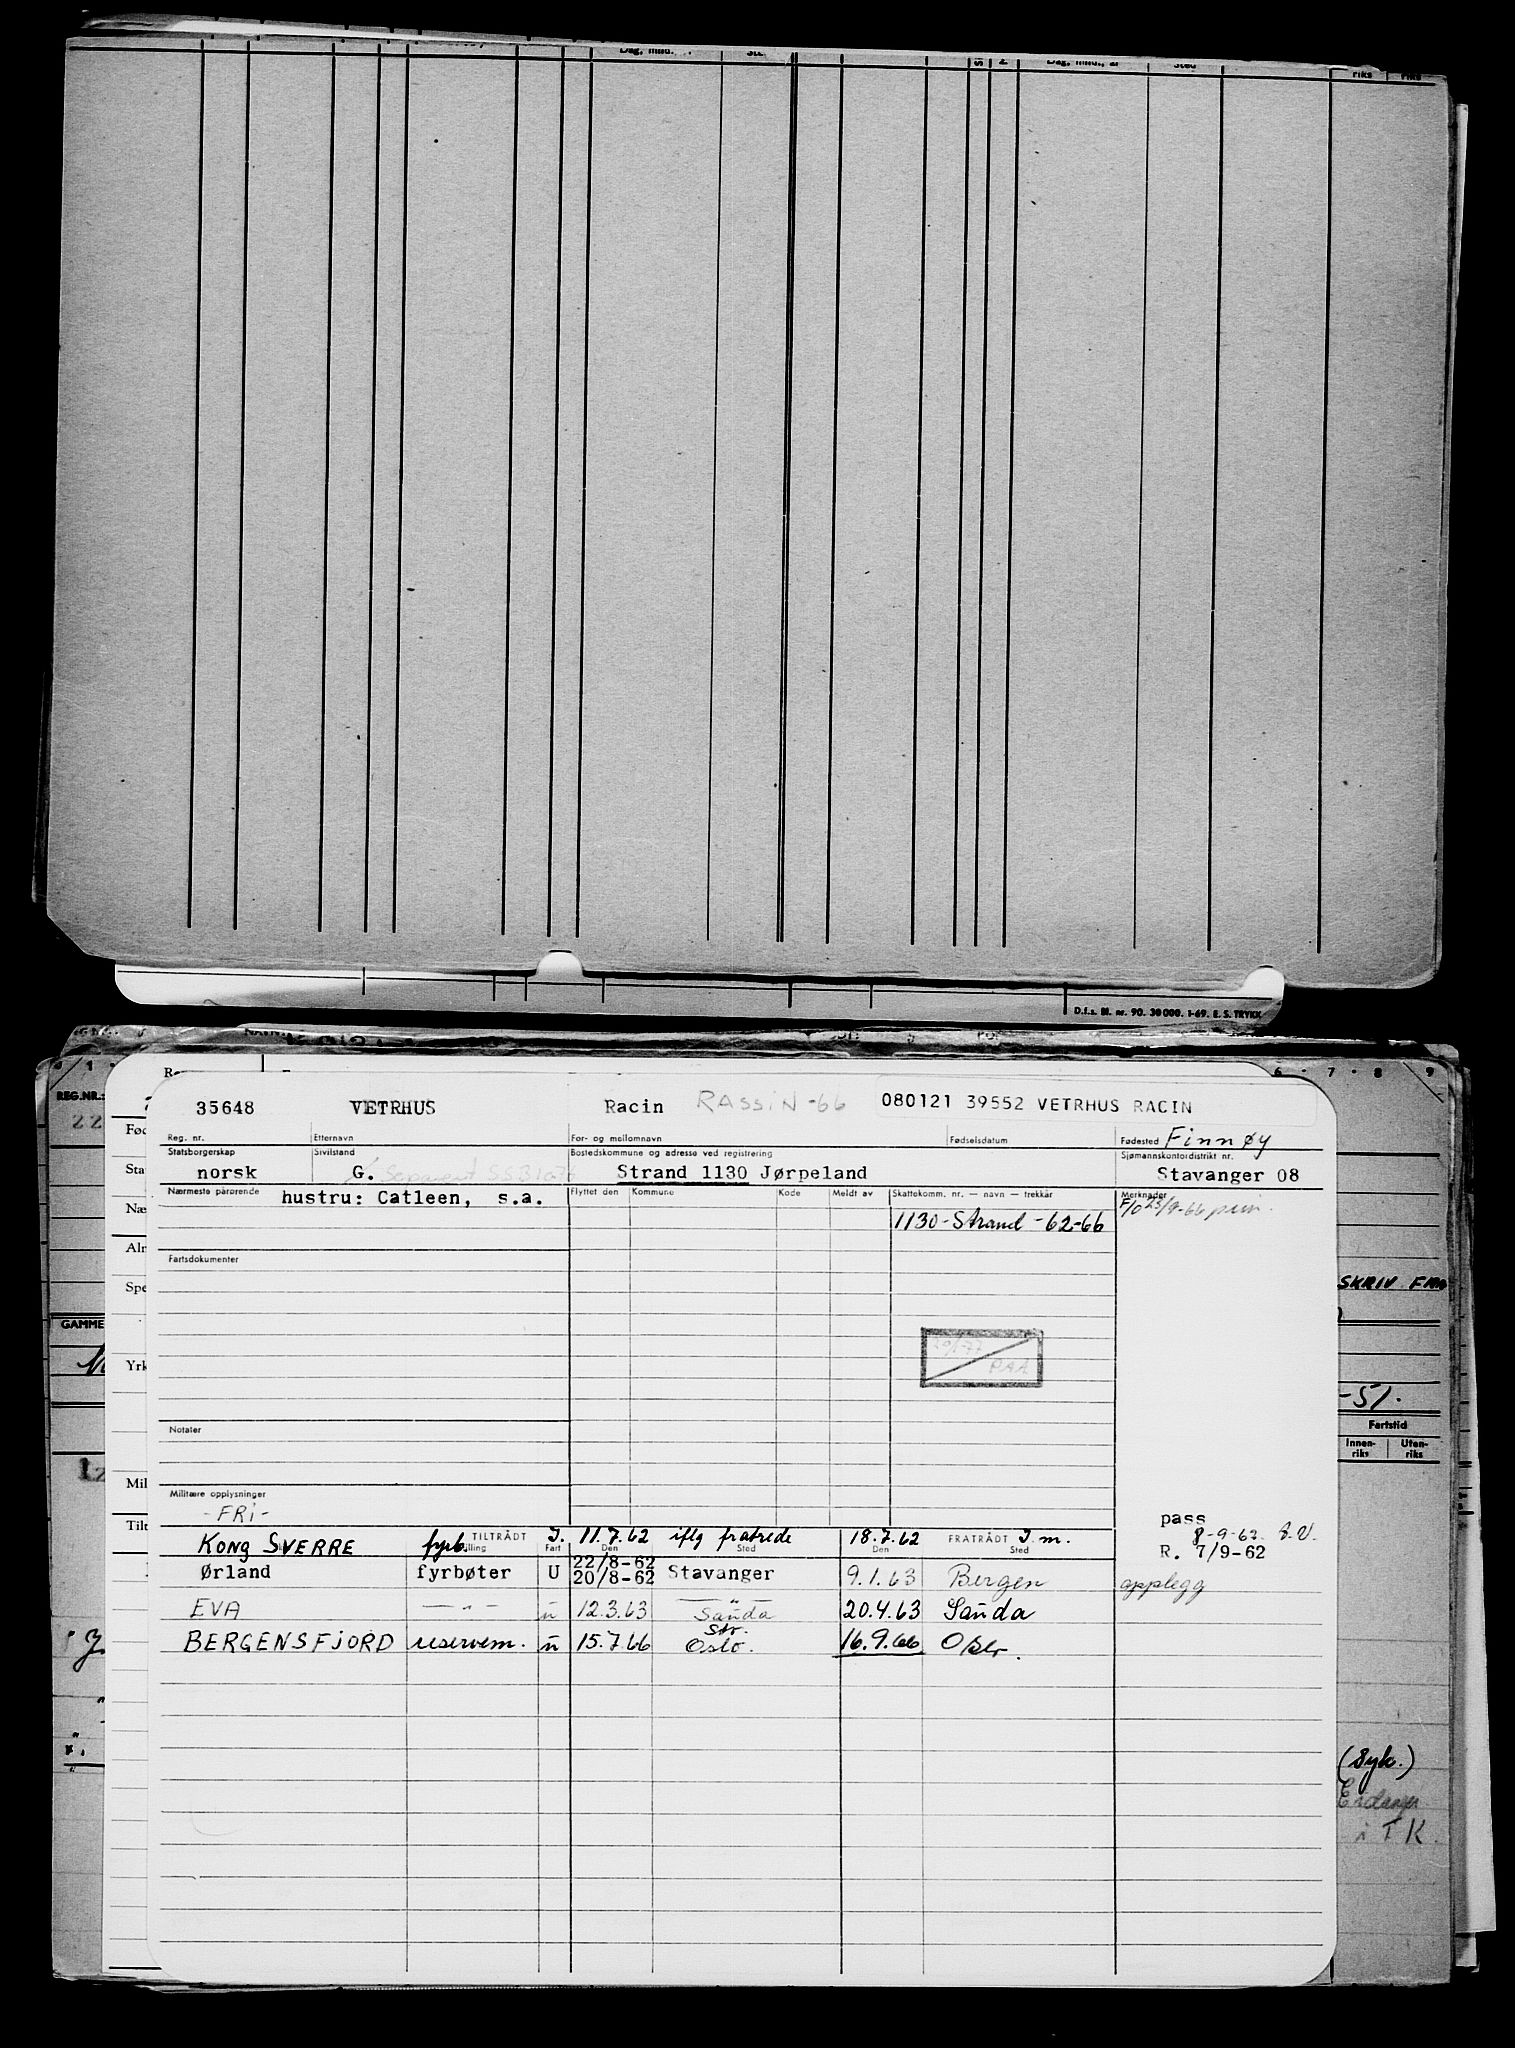 Dag, mnd. Std.
Dag, mnd., år Sted riks riks
D.f.s. Bl. nr. 90. 30000. 1-69. E. S. TRYKK
REG.NR.: 6 7 8 9
35648 VETRHUS Racin RASSIN-66 080121 39552 VETRHUS RACIN
Reg. nr. Etternavn For- og mellomnavn Fødselsdatum Fødested Finnøy
Statsborgerskap Sivilstand Bostedskommune og adresse ved registrering Sjømannskontordistrikt nr.
norsk G. Strand 1130 Jørpeland Stavanger 08
Nærmeste pårørende hustru: Catleen, s.a. Flyttet den Kommune Kode Meldt av Skattekomm. nr. — navn — trekkår Merknader
1130-Strand-62-66
Fartsdokumenter
SKRIV FRA
GAMME
PAA
Yrk
-51.
Fartstid
Innen-riks Uten-riks
Notater
Mil
Militære opplysninger
-FRI-
pass
8-9-62
R. 7/9-62
KONG SVERRE fyrb. TILTRÅDT I. 11.7.62 iflg fratrede 18.7.62 FRATRÅDT I m.
Stilling Fart Den Sted Den Sted
Ørland fyrbøter U 22/8-62 20/8-62 Stavanger 9.1.63 Bergen opplegg
EVA —"— u 12.3.63 Sauda 20.4.63 Sauda
BERGENSFJORD reservem. u 15.7.66 Oslo. 16.9.66 Oslo.
(Syk.)
i TK.